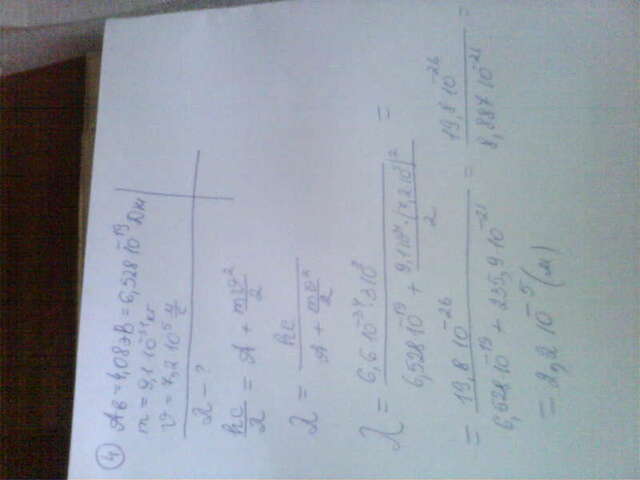 ④ Aв = 4,08эВ = 6,528·10⁻¹⁹ Дж
m = 9,1·10⁻³¹ кг
υ = 7,2·10⁵ м/с
λ - ?
hc/λ = A + mυ²/2
λ = hc/(A + mυ²/2)
λ = 6,6·10⁻³⁴·3·10⁸/(6,528·10⁻¹⁹ + 9,1·10⁻³¹·(7,2·10⁵)²/2) =
= 19,8·10⁻²⁶/(6,528·10⁻¹⁹ + 235,9·10⁻²¹) = 19,8·10⁻²⁶/8,887·10⁻²¹ =
= 2,2·10⁻⁵ (м)